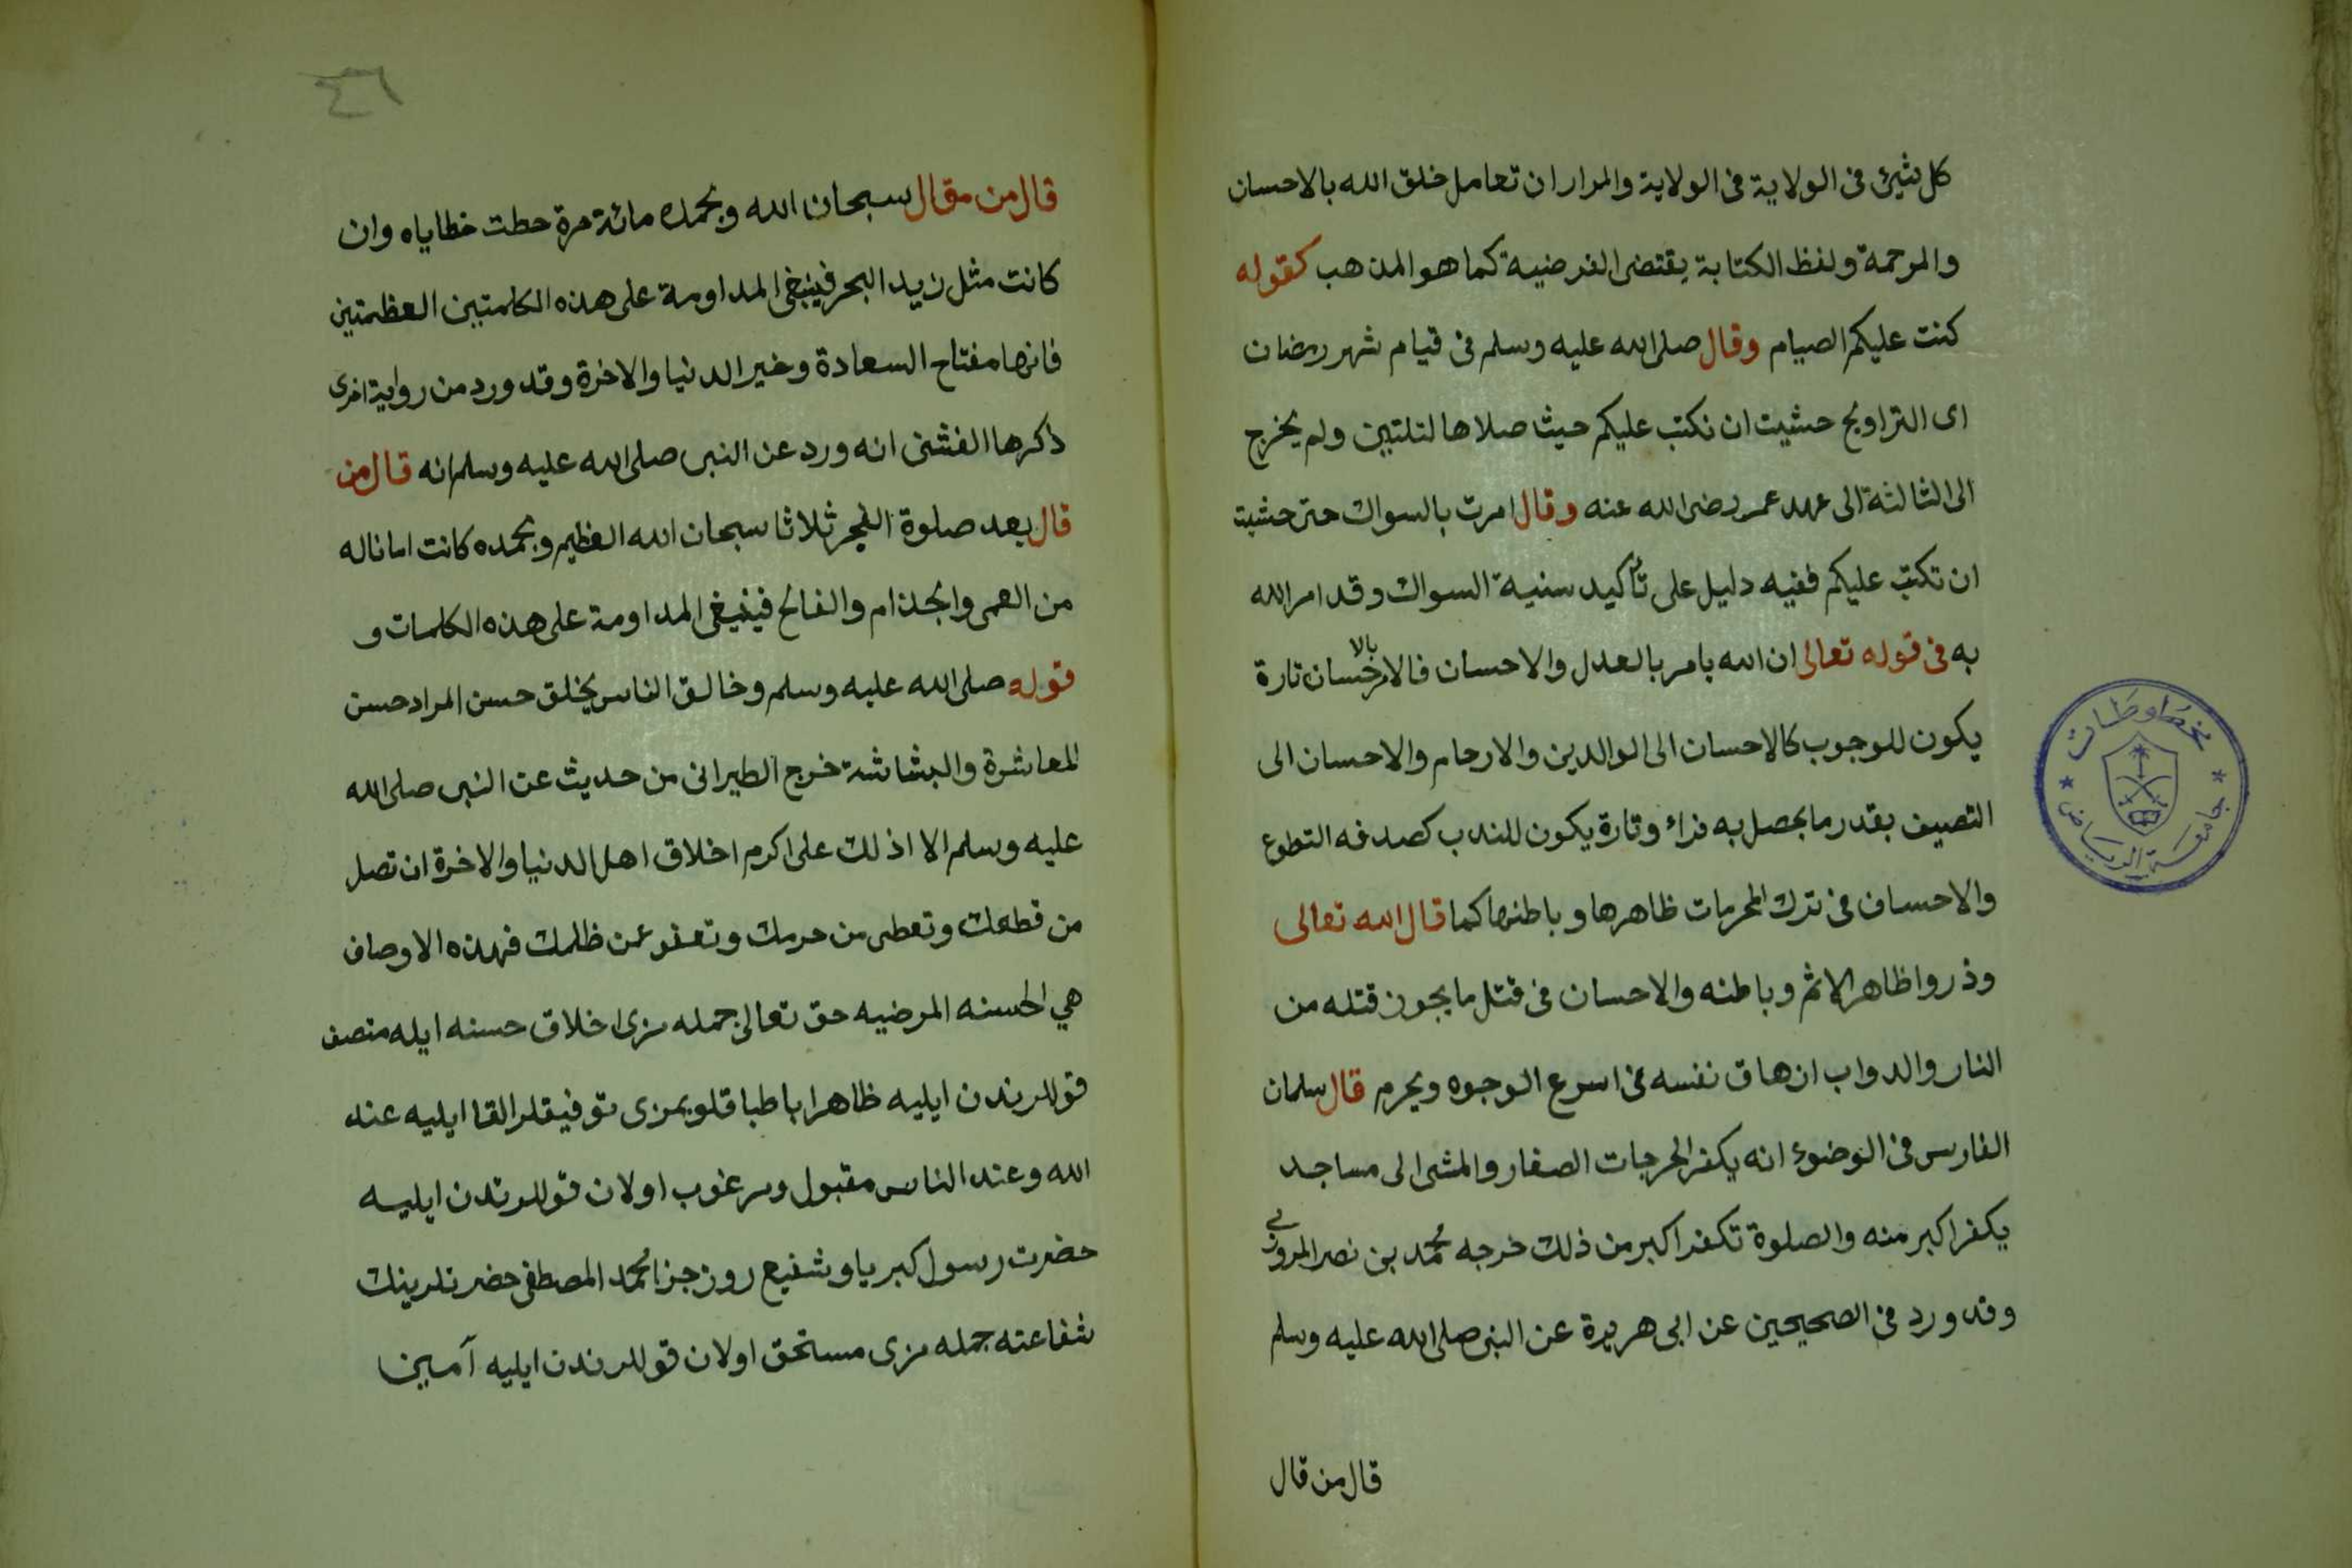 كل شيئ فى الولاية فى الولاية والمراد ان تعامل خلق الله بالاحسان
والمرحمة ولفظ الكتابة يقتضى الفرضية كما هو المذهب كقوله
كتت عليكم الصيام وقال صلى الله عليه وسلم فى قيام شهر رمضان
اى التراويح حشيت ان نكتب عليكم حيث صلاها لتلتين ولم يخرج
الى الثالثة الى عهد عمر رضى الله عنه وقال امرت بالسواك حتى حشيت
ان تكتب عليكم ففيه دليل على تأكيد سنية السواك وقد امر الله
به فى قوله تعالى ان الله يامر بالعدل والاحسان فالامر بالاحسان تارة
يكون للوجوب كالاحسان الى الوالدين والارحام والاحسان الى
الضيف بقدر ما يحصل به قراء وتارة يكون للندب كصدقه التطوع
والاحسان فى ترك المحرمات ظاهرها وباطنها كما قال الله تعالى
وذروا ظاهر الاثم وباطنه والاحسان فى قتل ما يجوز قتله من
النار والدواب ازهاق نفسه فى اسرع الوجوه ويحرم قال سلمان
الفارس فى الوضوء انه يكفر الجرجات الصغار والمشى الى مساجد
يكفر اكبر منه والصلوة تكفر اكبر من ذلك خرجه محمد بن نصر المروزي
وقد ورد فى الصحيحين عن ابى هريرة عن النبى صلى الله عليه وسلم
قال من قال
مخطوطات
جامعة الرياض
٤٦
قال من مقال سبحان الله وبحمده مائة مرة حطت خطاياه وان
كانت مثل زيد البحر فينبغى المداومة على هذه الكلمتين العظمتين
فانها مفتاح السعادة وخير الدنيا والاخرة وقد ورد من رواية اخرى
ذكرها الفشنى انه ورد عن النبى صلى الله عليه وسلم انه قال من
قال بعد صلوة الفجر ثلاثا سبحان الله العظيم وبحمده كانت امانا له
من العمى والجذام والفالج فينبغى المداومة على هذه الكلمات و
قوله صلى الله عليه وسلم وخالق الناس بخلق حسن المراد حسن
المعاشرة والبشاشة خرج الطبرانى من حديث عن النبى صلى الله
عليه وسلم الا اذلك على اكرم اخلاق اهل الدنيا والاخرة ان تصل
من قطعك وتعطى من حرمك وتعفو عمن ظلمك فهذه الاوصاف
هي الحسنه المرضيه حق تعالى جمله مزى اخلاق حسنه ايله متصف
قوللرندن ايليه ظاهرا باطبا قلوبمزى توفيقلر القا ايليه عند
الله وعند الناس مقبول ومرغوب اولان قوللرندن ايليه
حضرت رسول كبريا وشفيع روز جزا محمد المصطفى حضرتلرينك
شفاعته جمله مزى مستحق اولان قوللرندن ايليه آمين